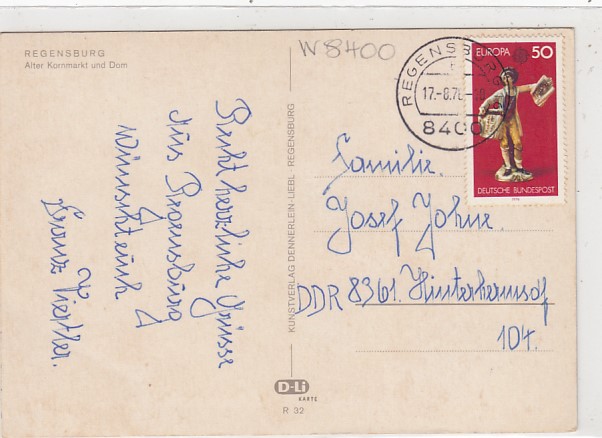 REGENSBURG
Alter Kornmarkt und Dom
W 8400
REGENSBURG
17.-8.76
8400
EUROPA 50
DEUTSCHE BUNDESPOST
1976
Recht herzliche Grüsse
Aus Regensburg
Wünscht euch
Franz
KUNSTVERLAG DENNERLEIN LIEBL · REGENSBURG
Familie.
Josef Johne.
DDR 8361. Hinterhermsdf
104.
D-Li
KARTE
R 32